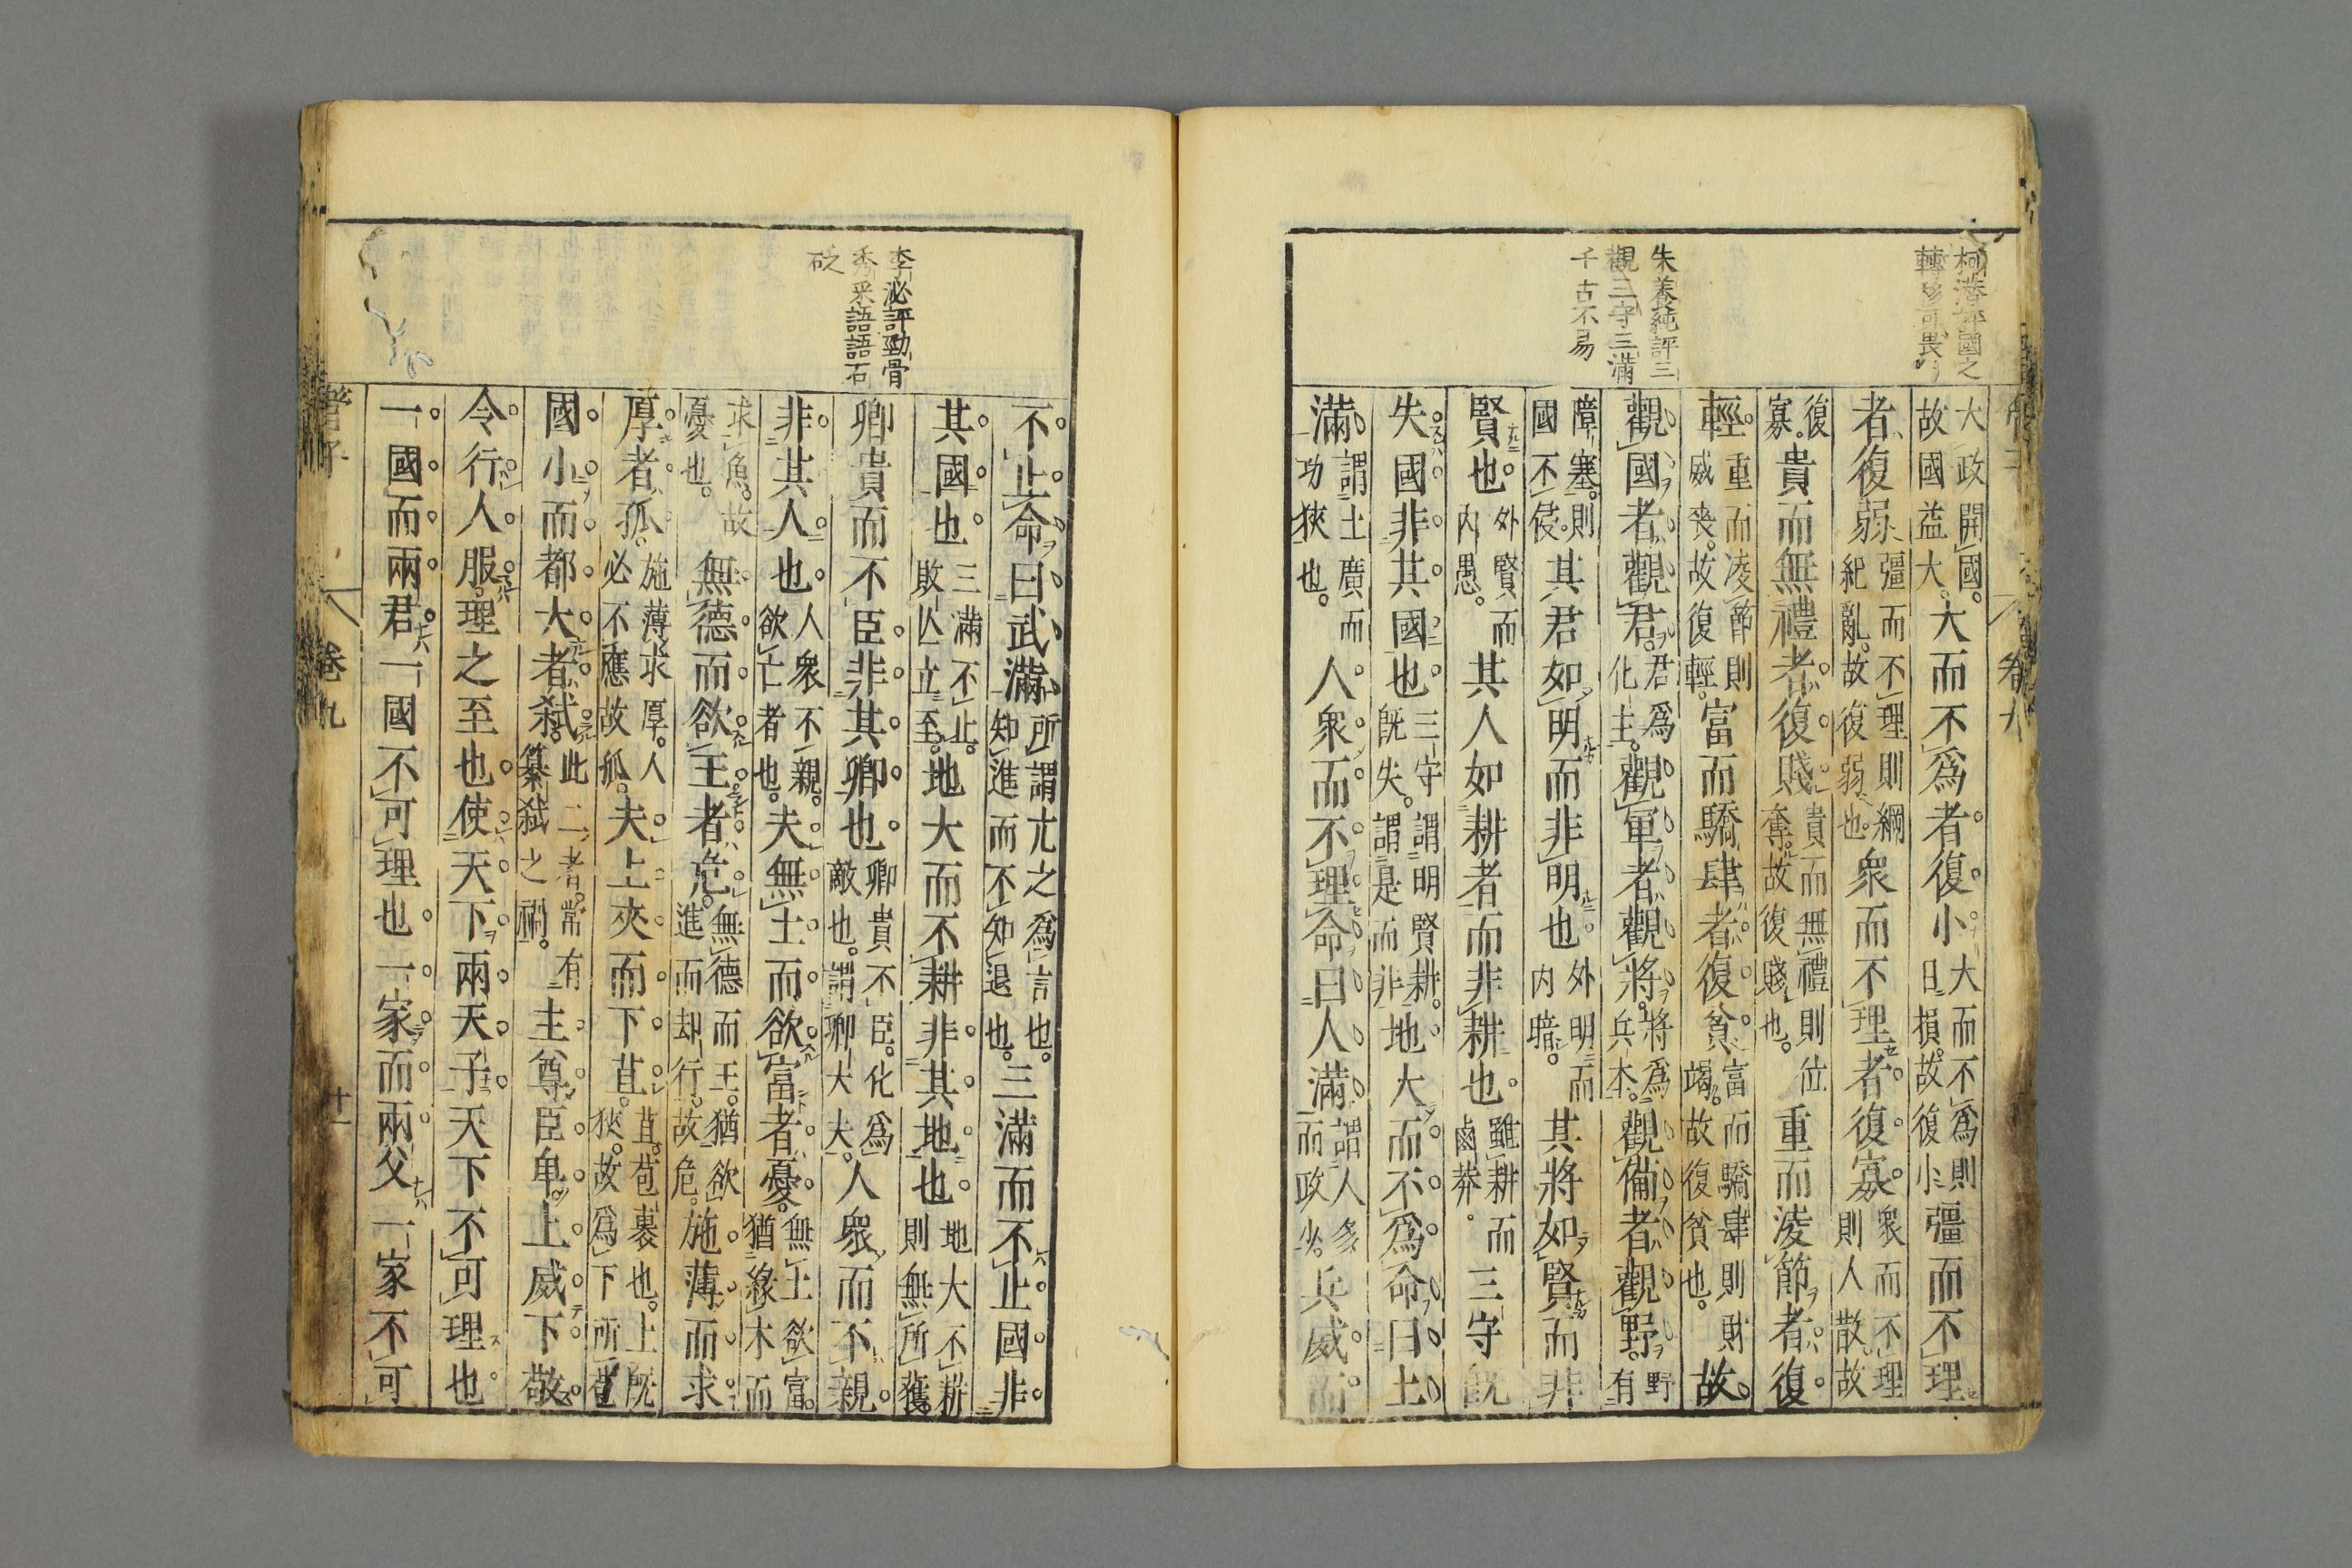 柯潛評國之
轉移可畏
朱養純評三
觀三守三滿
千古不易
大政開國
故國益大。大而不爲者。復小。大而不爲則日損。故復小彊而不理
者復弱彊而不理則綱紀亂。故復弱也。衆而不理者。復寡。衆而不理則人散故
復寡。貴而無禮者。復賤。貴而無禮則位奪。故復賤也。重而淩節者。復
輕。重而淩節則威喪。故復輕。富而驕肆者。復貧。富而驕肆則財竭。故復貧也。故
觀國者。觀君。君爲化主。觀軍者。觀將。將爲兵本。觀備者。觀野。野有
障塞。則國不侵。其君如明而非明也。外明而内暗。其將如賢而非
賢也。外賢而内愚。其人如耕者而非耕也。雖耕而鹵莽。三守既
失。國非其國也。三守謂明賢耕。既失。謂是而非地大而不爲。命曰土
滿。謂土廣而功狹也。人衆而不理。命曰人滿。謂人多而政少。兵威而
管子
卷九
李泌評勁骨
秀采語語石
砭
不止。命曰武滿。所謂亢之爲言也。知進而不知退也。三滿而不止。國非
其國也。三滿不止。敗亾立至。地大而不耕。非其地也。地大不耕則無所獲。
卿貴而不臣。非其卿也。卿貴不臣。化爲敵也。謂卿大夫。人衆而不親。
非其人也。人衆不親。欲亡者也。夫無土而欲富者。憂。無土欲富。猶緣木而
求魚。故憂也。無德而欲王者。危。無德而王。猶欲進而却行。故危。施薄而求
厚者。孤。施薄求厚。人必不應故孤。夫上夾而下苴。苴。苞裹也。上既狹。故爲下所苞
國小而都大者。弑。此二者。常有纂弑之禍。主尊臣卑。上威下敬。
令行人服。理之至也。使天下兩天子。天下不可理也
一國而兩君。一國不可理也。一家而兩父。一家不可
管子
卷九
廿一